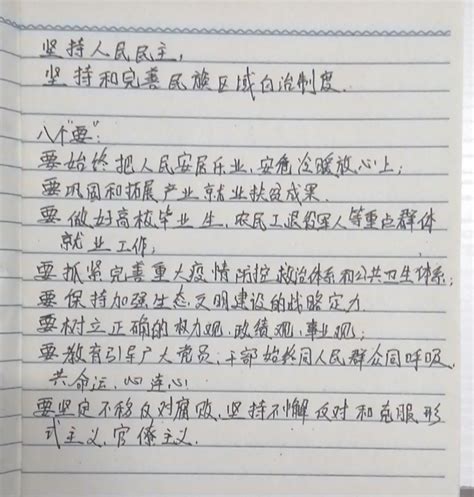 坚持人民民主，
坚持和完善民族区域自治制度.
八个“要”：
要始终把人民安居乐业、安危冷暖放心上；
要巩固和拓展产业就业扶贫成果.
要做好高校毕业生、农民工退役军人等重点群体
就业工作；
要抓紧完善重大疫情防控救治体系和公共卫生体系；
要保持加强生态文明建设的战略定力.
要树立正确的权力观、政绩观、事业观；
要教育引导广大党员、干部始终同人民群众同呼吸、
共命运、心连心.
要坚定不移反对腐败、坚持不懈反对和克服形
式主义、官僚主义.